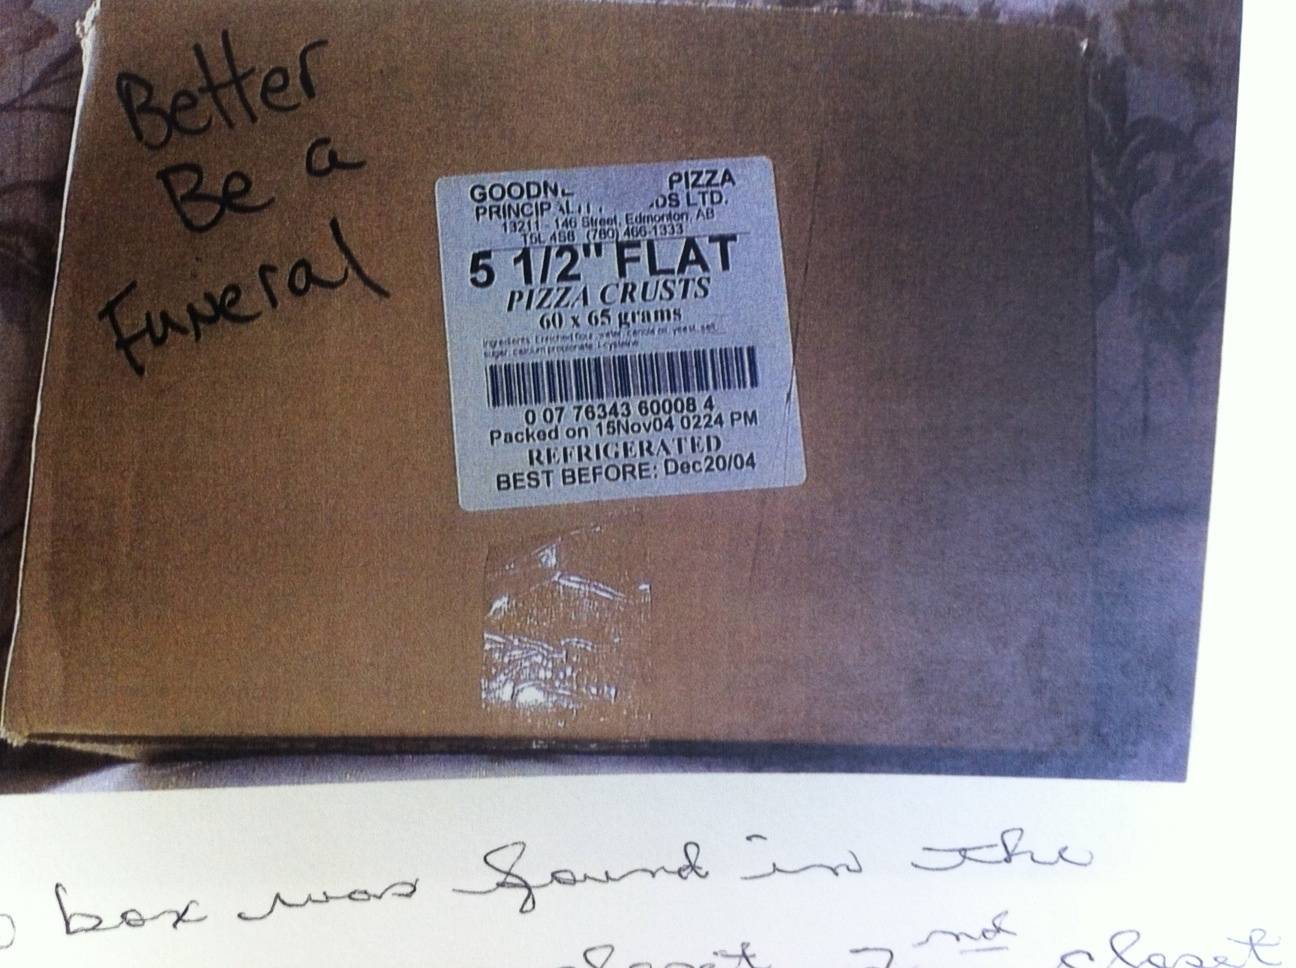 Better
Be a
Funeral
GOODN PIZZA
PRINCIPALI DS LTD.
13211 146 Street, Edmonton, AB
T5L 4S8 (780) 466-1333
5 1/2" FLAT
PIZZA CRUSTS
60 x 65 grams
Ingredients: Enriched flour, water, canola oil, yeast, salt,
sugar, calcium propionate, l-cysteine
0 07 76343 60008 4
Packed on 15Nov04 0224 PM
REFRIGERATED
BEST BEFORE: Dec20/04
box was found in the
closet 2nd closet